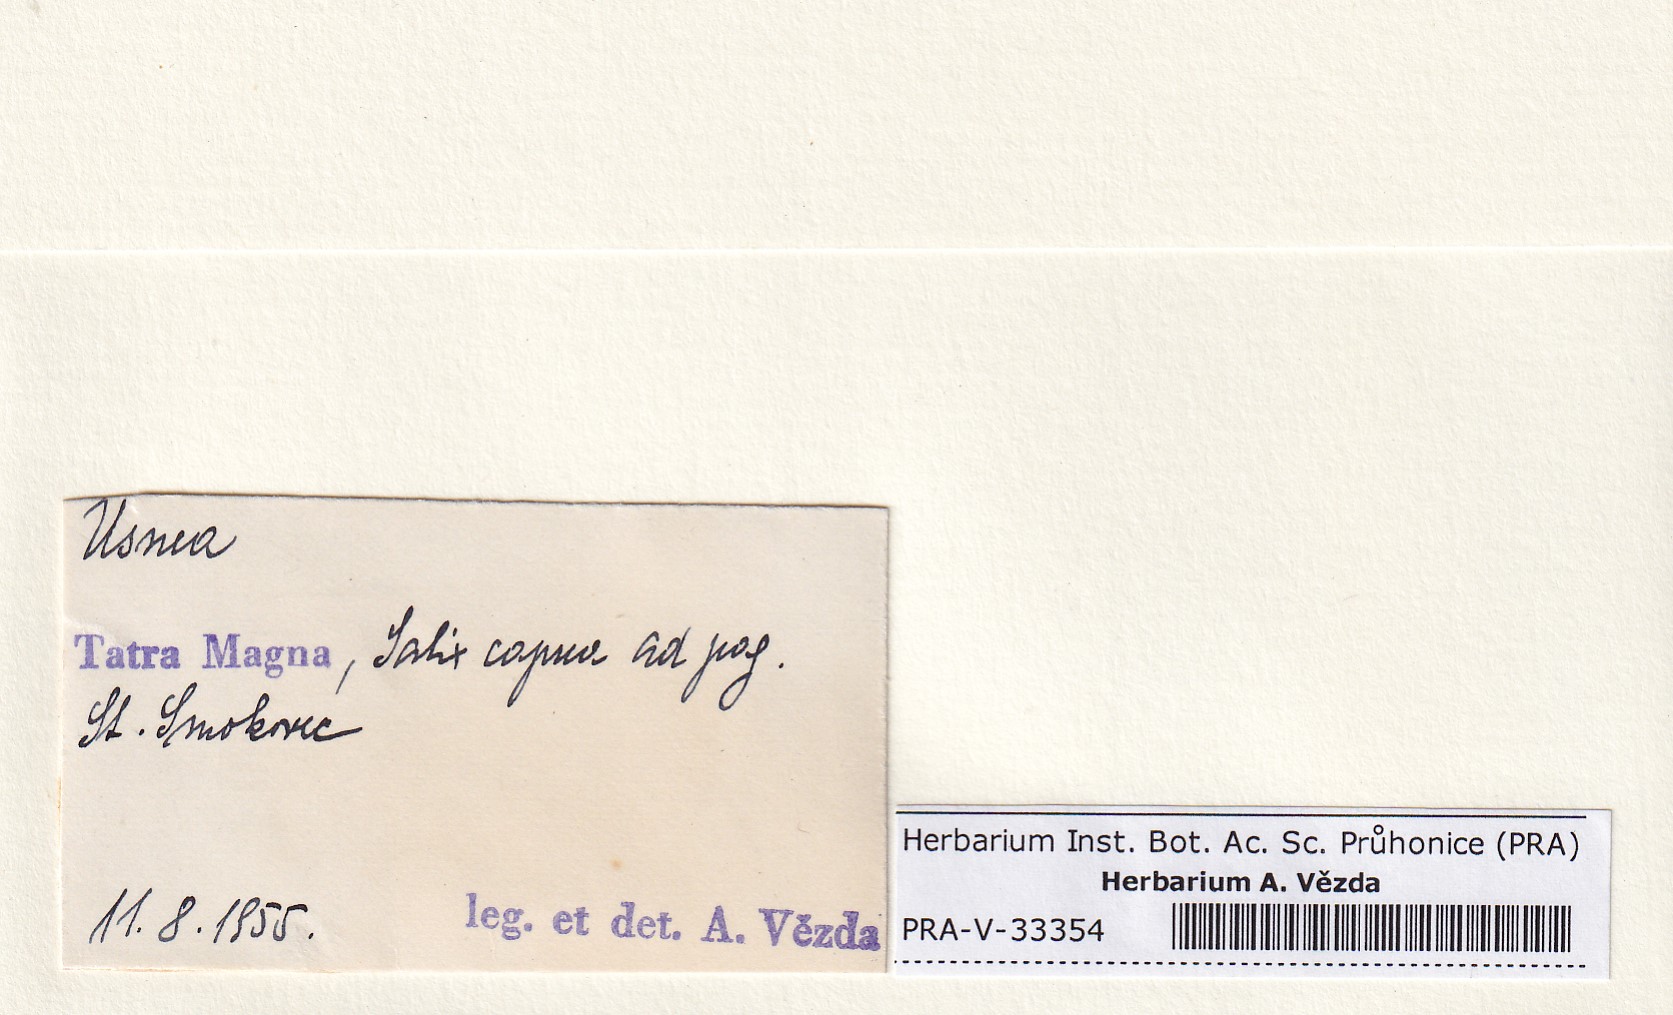 Usnea
Tatra Magna, Salix caprea ad pag.
St. Smokovec
11. 8. 1955.
leg. et det. A. Vězda
Herbarium Inst. Bot. Ac. Sc. Průhonice (PRA)
Herbarium A. Vězda
PRA-V-33354